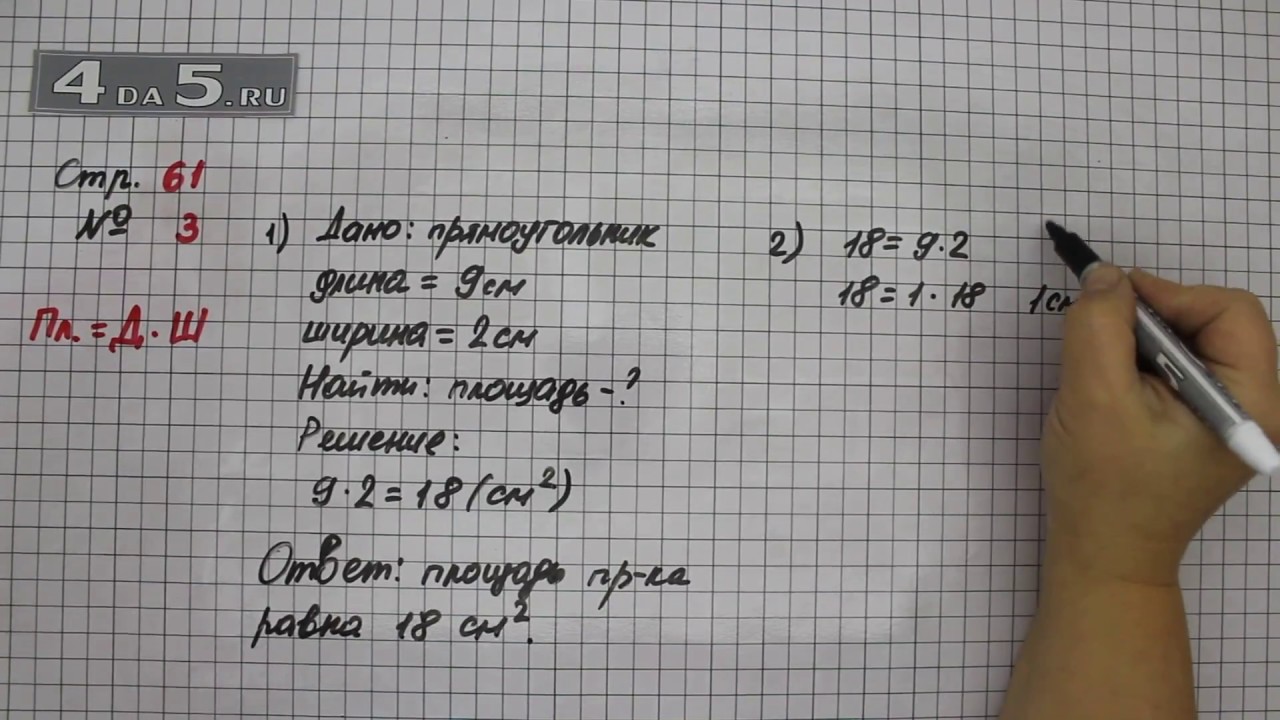 4 DA 5.RU
Стр. 61
№ 3
Пл. = Д · Ш
1) Дано: прямоугольник
длина = 9 см
ширина = 2 см
Найти: площадь - ?
Решение:
9 · 2 = 18 (см²)
Ответ: площадь пр-ка
равна 18 см².
2) 18 = 9 · 2
18 = 1 · 18 1 см